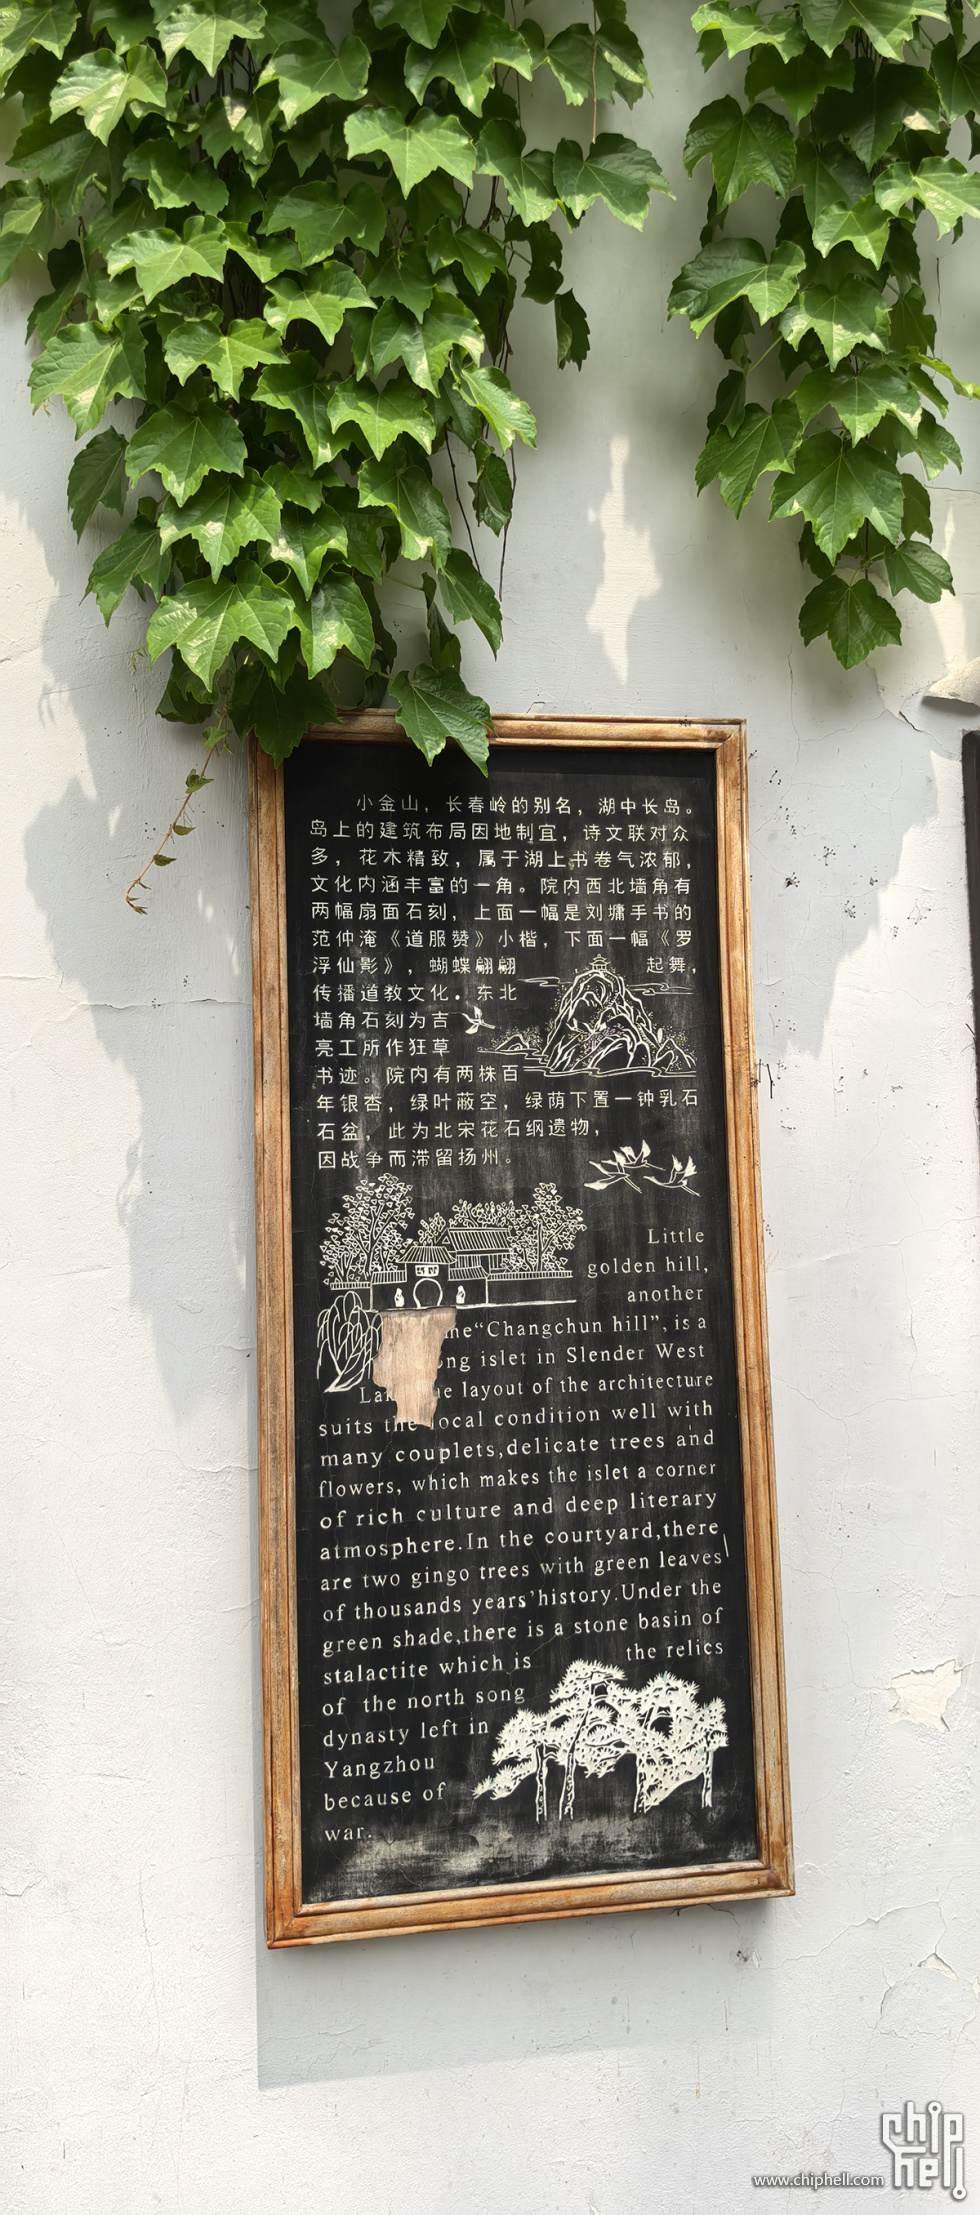 小金山，长春岭的别名，湖中长岛。
岛上的建筑布局因地制宜，诗文联对众
多，花木精致，属于湖上书卷气浓郁，
文化内涵丰富的一角。院内西北墙角有
两幅扇面石刻，上面一幅是刘墉手书的
范仲淹《道服赞》小楷，下面一幅《罗
浮仙影》，蝴蝶翩翩起舞，
传播道教文化。东北
墙角石刻为吉
亮工所作狂草
书迹。院内有两株百
年银杏，绿叶蔽空，绿荫下置一钟乳石
石盆，此为北宋花石纲遗物，
因战争而滞留扬州。
Little
golden hill,
another
“Changchun hill”, is a
islet in Slender West
layout of the architecture
suits the local condition well with
many couplets,delicate trees and
flowers, which makes the islet a corner
of rich culture and deep literary
atmosphere.In the courtyard,there
are two gingo trees with green leaves
of thousands years'history.Under the
green shade,there is a stone basin of
stalactite which is the relics
of the north song
dynasty left in
Yangzhou
because of
war.
www.chiphell.com
chip
hell